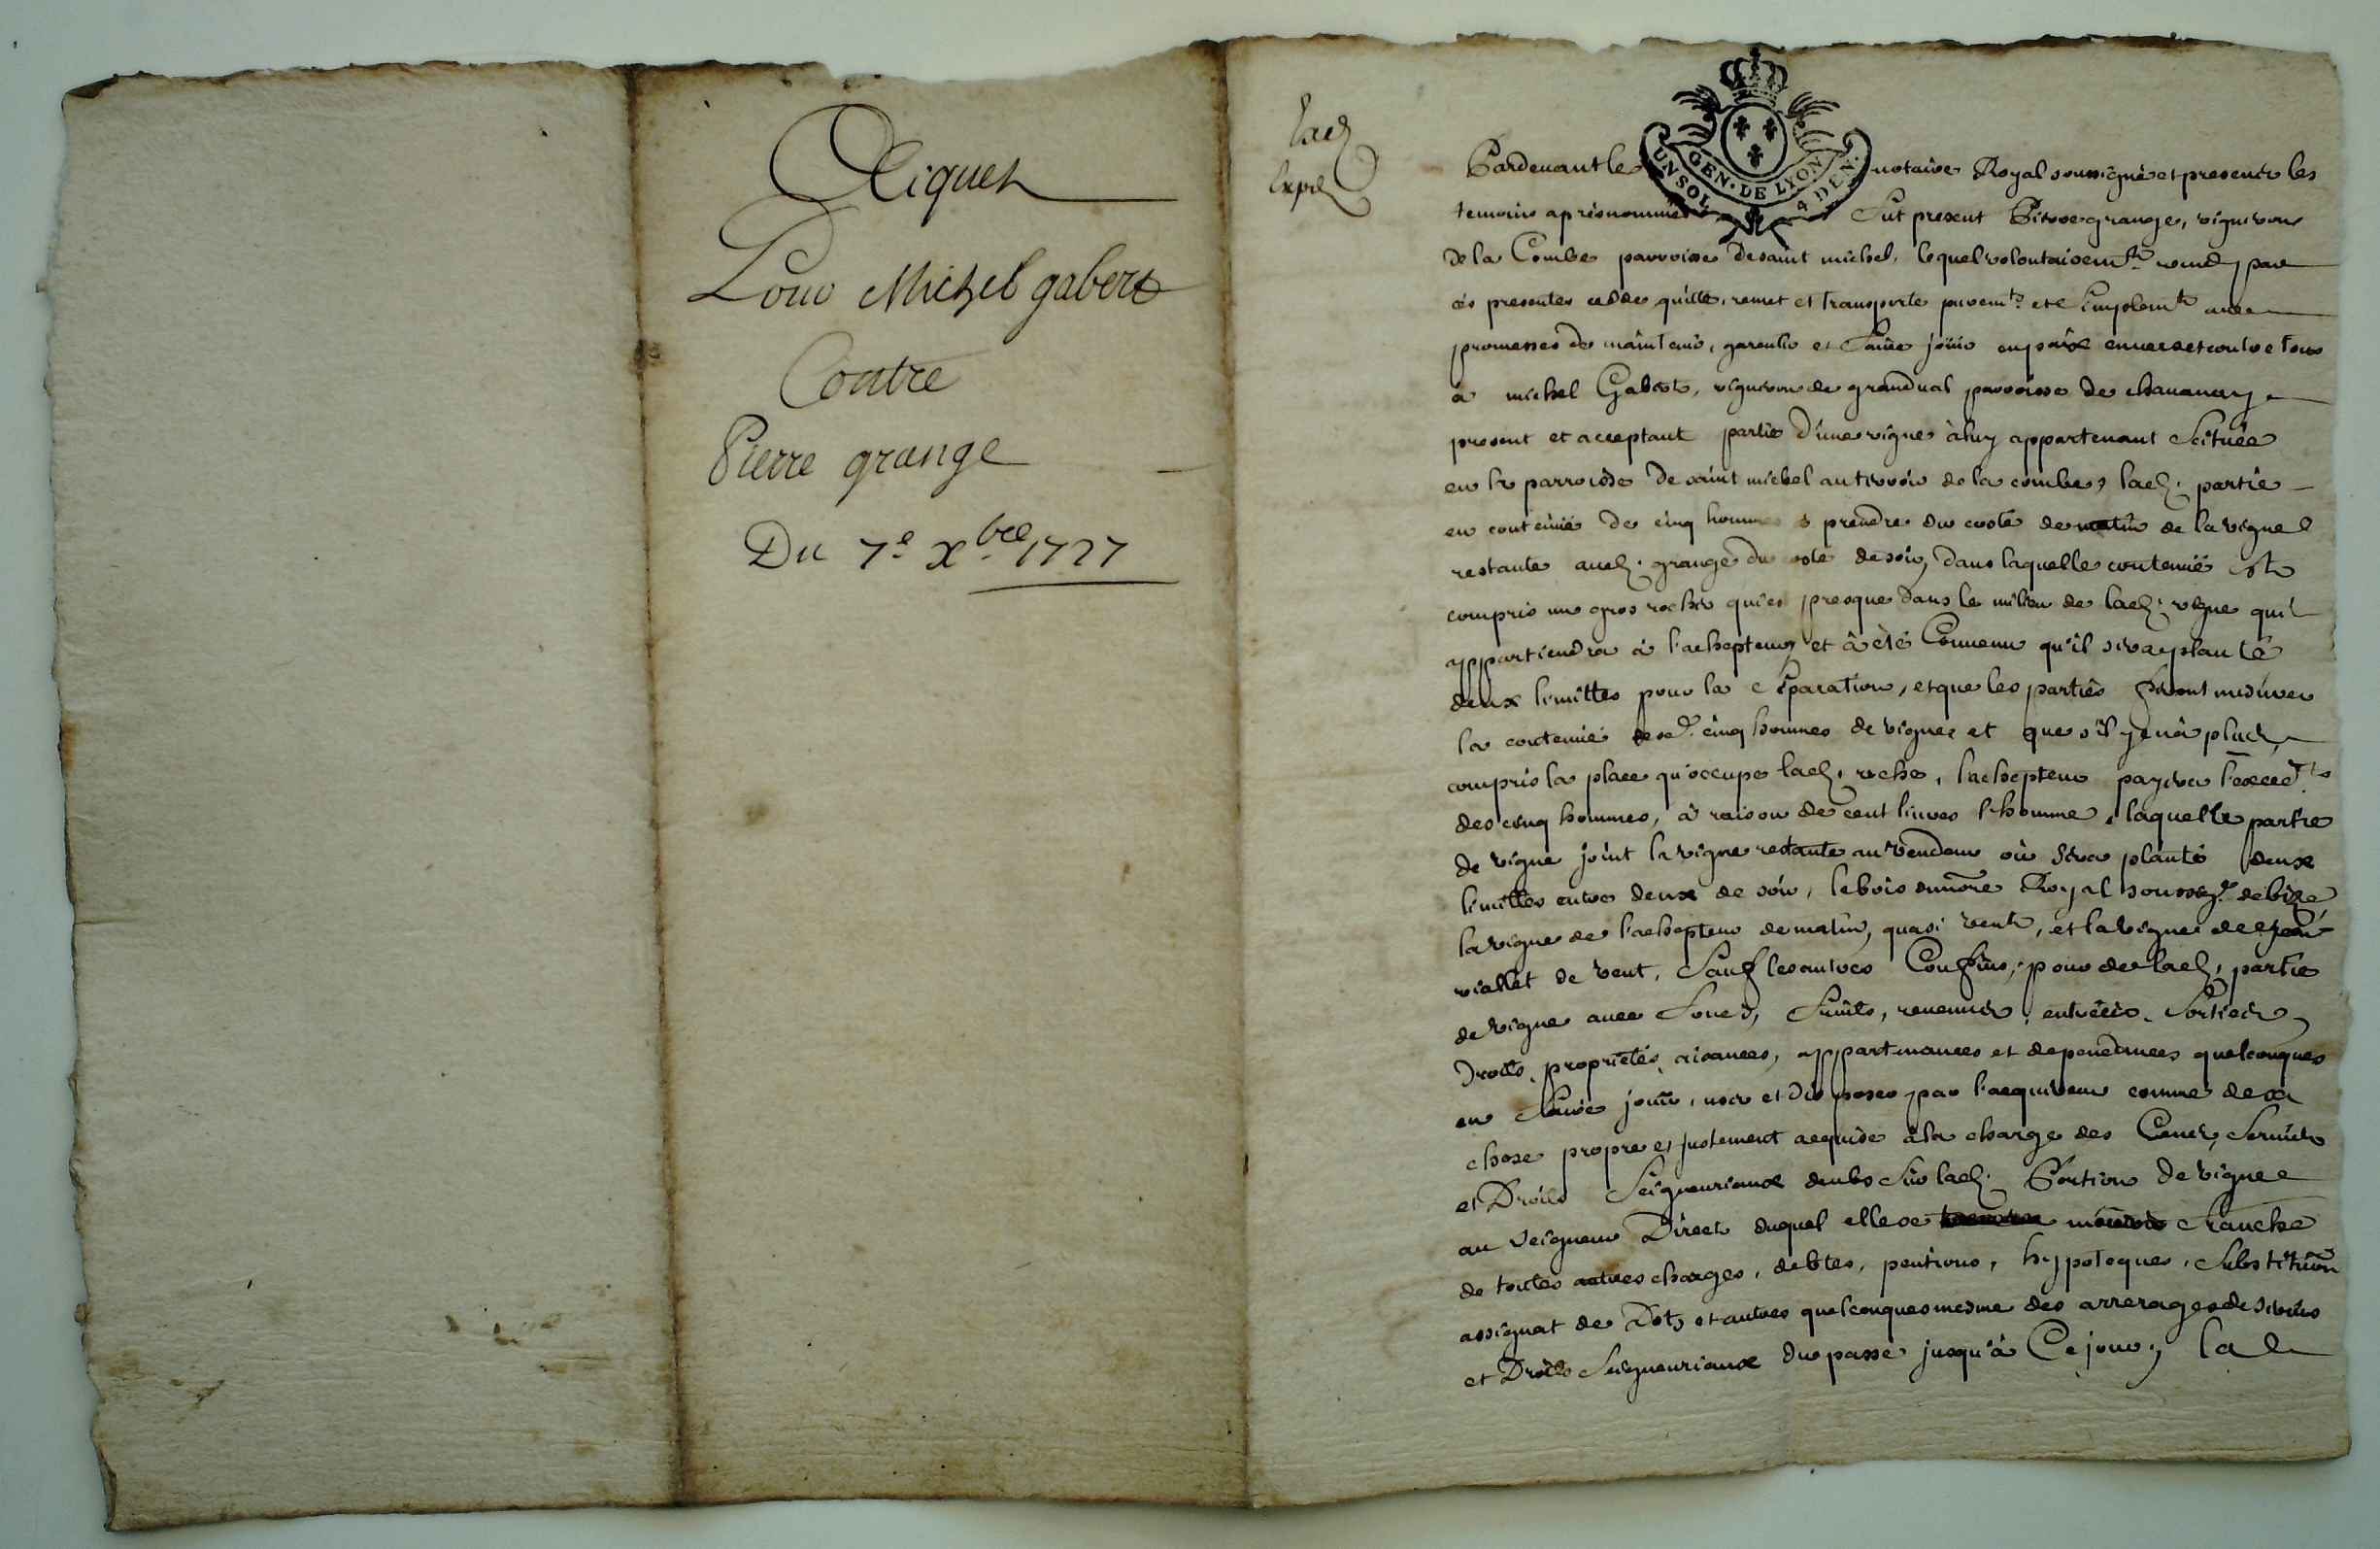 Aiquet
Pour Michel gabert
Contre
Pierre grange
Du 7e Xbre 1727
lad
Exped
GEN. DE LYON
UN SOL 4 DEN.
Pardevant le notaire Royal soussigné et presents les
temoins apres nommés fut present Pierre grange, vigneron
de la Combe parroisse de saint michel, lequel volontairemt vend par
ces presentes cedde quitte, remet et transporte puremt et simplemt avec
promesses de maintenir, garentir et faire joüir en paix envers et contre tous
à michel Gabert, vigneron de grandval parroisse de chavanay
present et acceptant partie d'une vigne à luy appartenant scituée
en la parroisse de saint michel au terroir de la combe, lad. partie
en contenüe de cinq hommes à prendre du costé de matin de la vigne
restante aud. grange du costé de soir, dans laquelle contenüe est
compris un gros rocher qui est presque dans le milieu de lad. vigne qui
appartiendra à l'achepteur, et à été Convenu qu'il sera planté
deux limittes pour la separation, et que les parties feront mesurer
la contenüe desd. cinq hommes de vigne et que s'il y en à plus
compris la place qu'occupe lad. roche, l'achepteur payera l'exced.t
des cinq hommes, à raison de cent livres l'homme, laquelle partie
de vigne joint la vigne restante au vendeur où sera planté deux
limittes entre deux de soir, le bois du nore Royal soussig.é de bize
la vigne de l'achepteur de matin, quasi vent, et la vigne de jean
viallet de vent, sauf les autres Confins, pour de lad. partie
de vigne avec fonds, fruits, revenus, entrées, sorties,
droits, proprietés, aisances, appartenances et dependances quelconques
en faire joüir, user et disposer par l'acquereur comme de sa
chose propre et justement acquise à la charge des Cens, servis
et Droits Seigneuriaux deubs sur lad. Portion de vigne
au seigneur Direct duquel elle se mouvoir franche
de toutes autres charges, debtes, pentions, hypoteques, substitution
assignat de Dots et autres quelconques mesme des arrerages de servis
et Droits Seigneuriaux du passé jusqu'à Ce jour, la